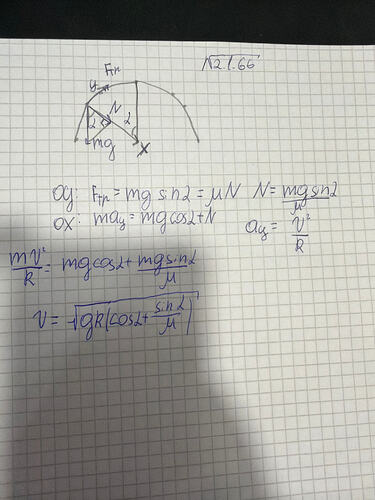 √2.1.66
Fтр
y
N
2
2
mg
X
oy: Fтр = mg sin2 = μN N = mg sin2 / μ
ox: maц = mgcos2+N aц = V² / R
mV² / R = mgcos2 + mg sin2 / μ
V = √gR(cos2 + sin2 / μ)